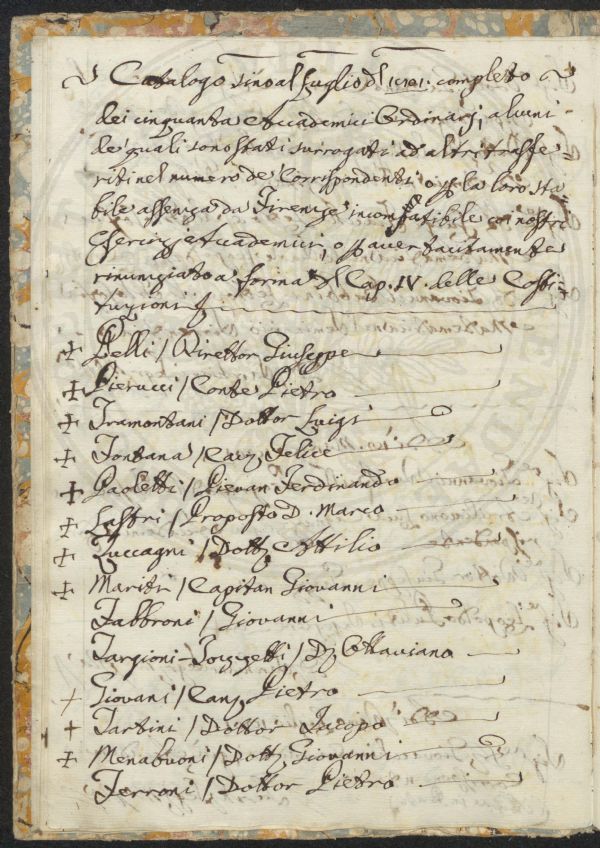 Catalogo sino al Luglio del completo
dei cinquanta Accademici Ordinarj, alcuni
de quali sono stati surrogati ad altri trasfe-
riti nel numero de Corrispondenti o p la loro sta-
bile assenza da Firenze incompatibile coi nostri
Esercizj Accademici, o p aver tacitamente
rinunziato a forma del Cap. IV. delle Costi-
tuzioni
+ Pelli / Direttor Giuseppe
+ Pierucci / Conte Pietro
+ Tramontani / Dottor Luigi
+ Fontana / Cav. Felice
+ Paoletti / Pievan Ferdinando
+ Lastri / Proposto D. Marco
+ Zuccagni / Dott. Attilio
+ Mariti / Capitan Giovanni
Fabbroni / Giovanni
Targioni-Tozzetti / Dr. Ottaviano
+ Giovani / Can. Pietro
+ Tartini / Dottor Jacopo
+ Menabuoni / Dott. Giovanni
Ferroni / Dottor Pietro